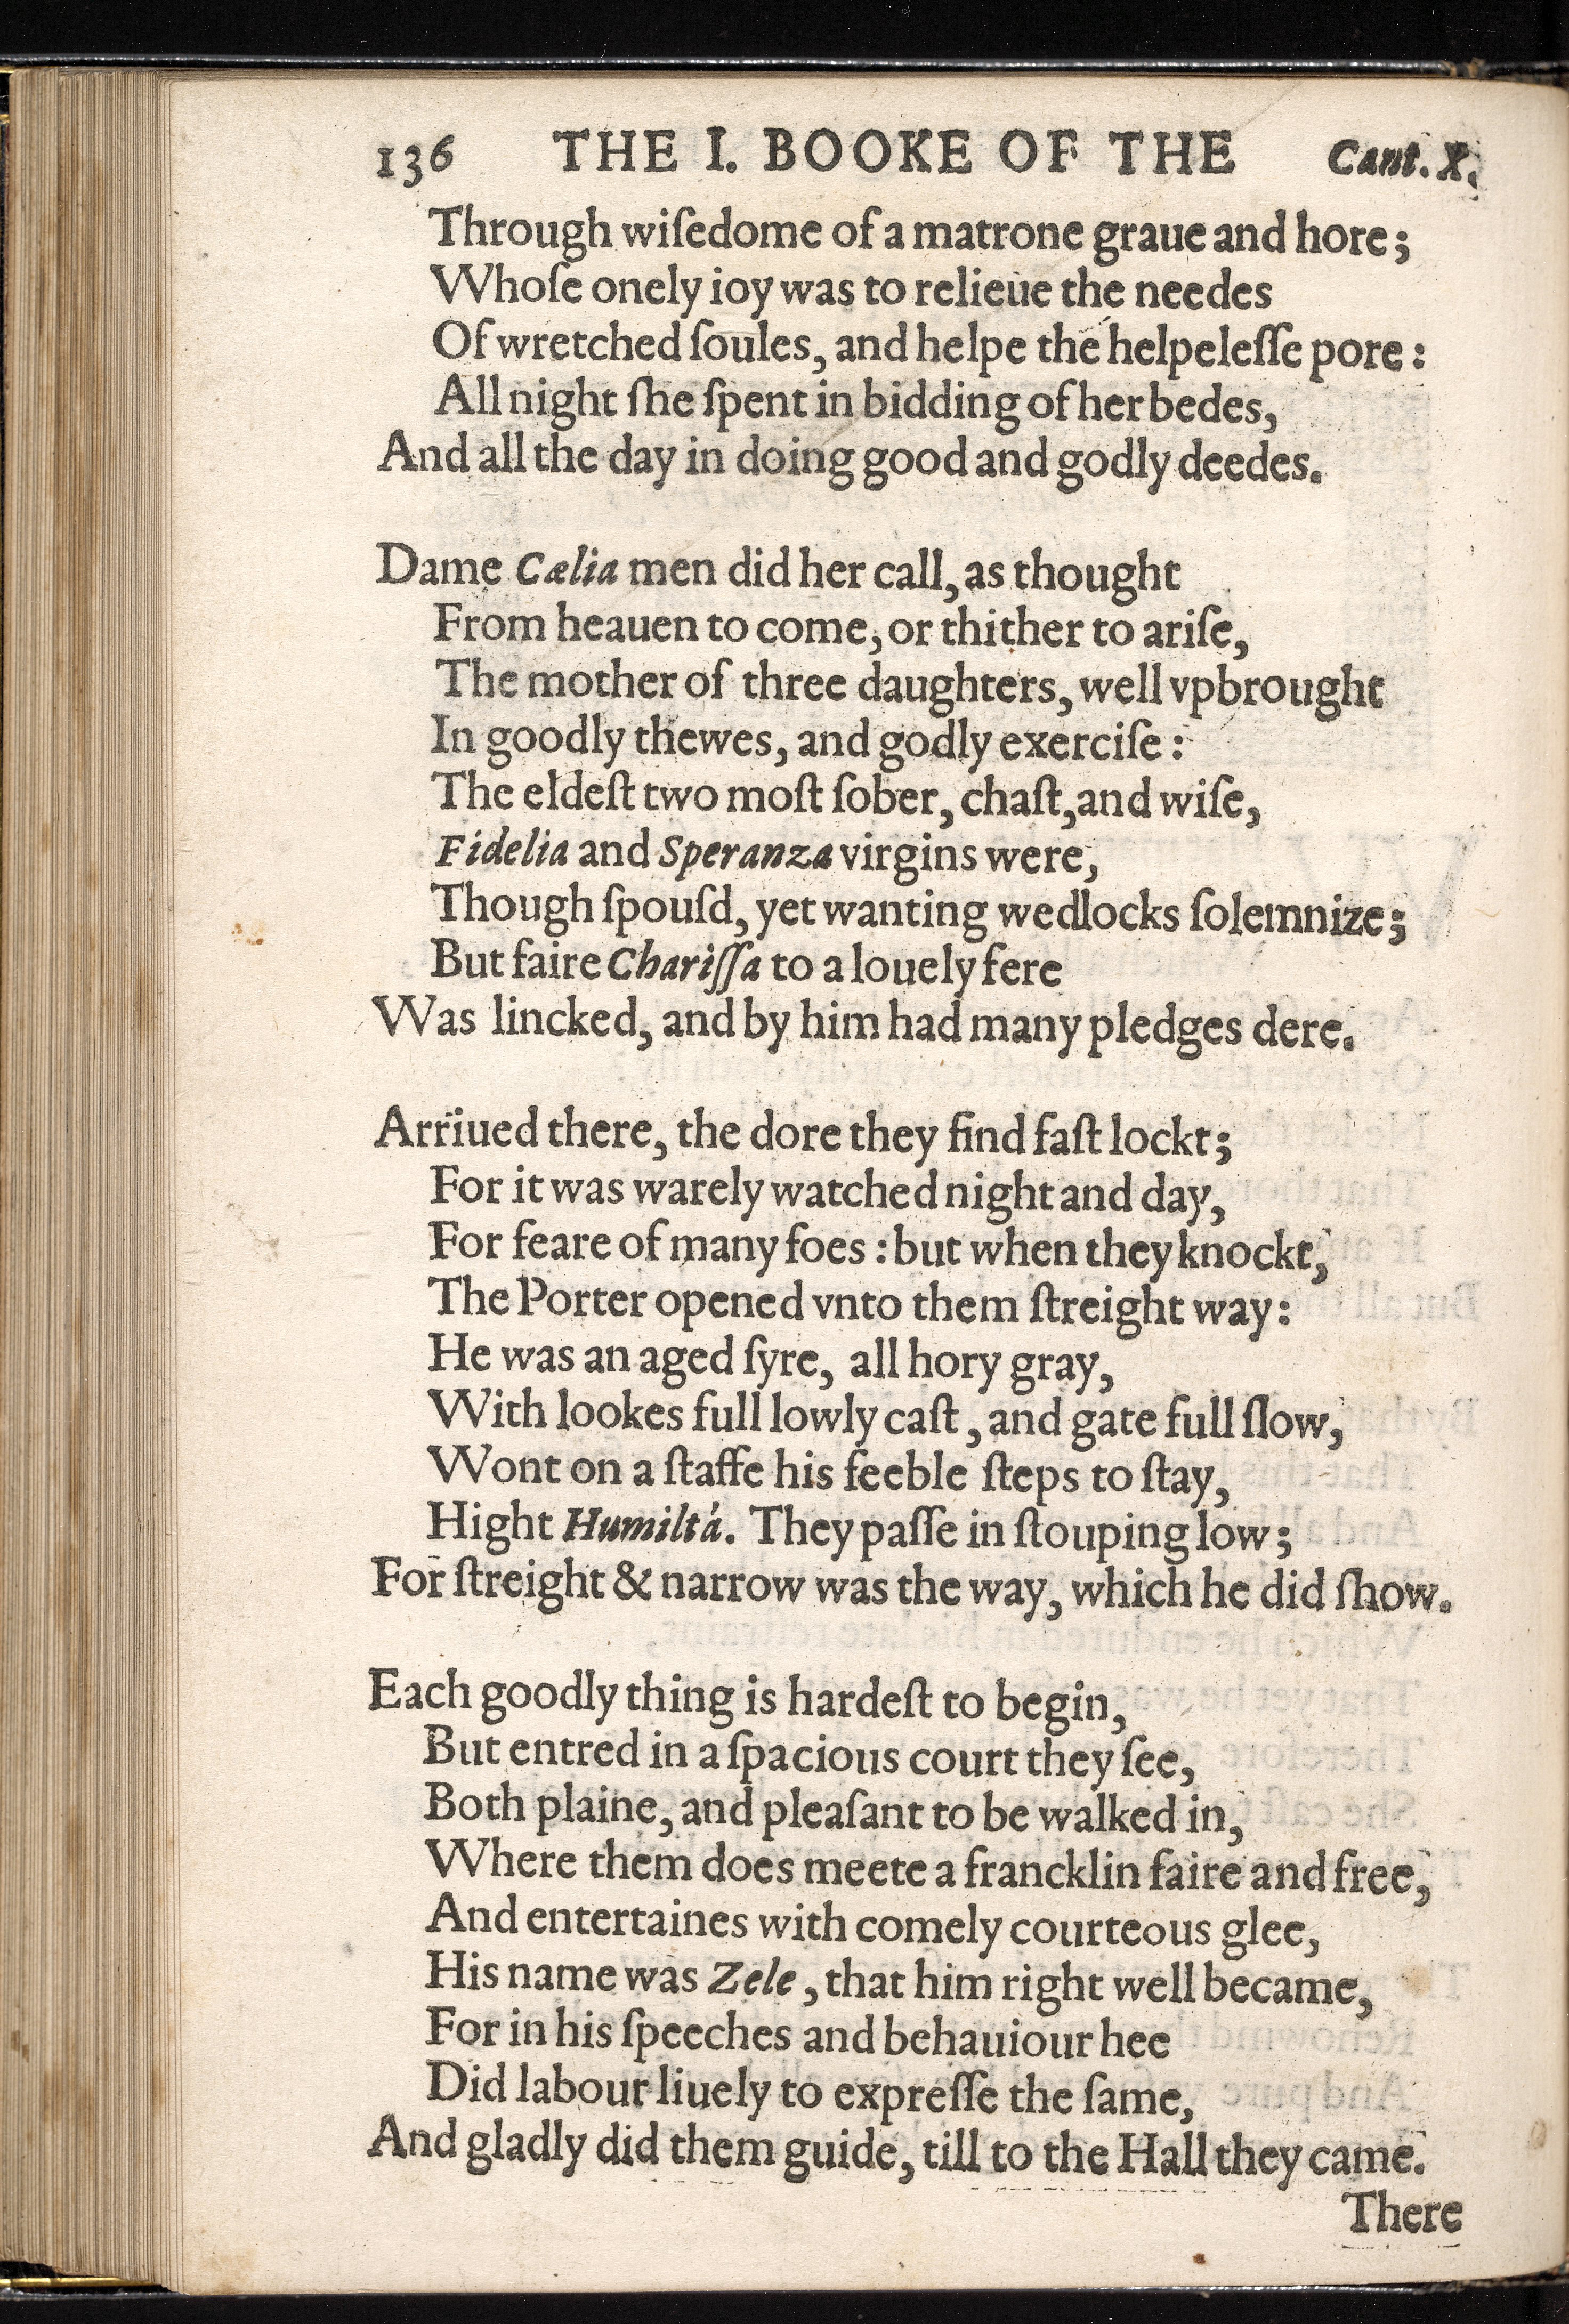 136 THE I. BOOKE OF THE Cant. X.
Through wiſedome of a matrone graue and hore;
Whoſe onely ioy was to relieue the needes
Of wretched ſoules, and helpe the helpeleſſe pore:
All night ſhe ſpent in bidding of her bedes,
And all the day in doing good and godly deedes.

Dame Cælia men did her call, as thought
From heauen to come, or thither to ariſe,
The mother of three daughters, well vpbrought
In goodly thewes, and godly exerciſe:
The eldeſt two moſt ſober, chaſt, and wiſe,
Fidelia and Speranza virgins were,
Though ſpouſd, yet wanting wedlocks ſolemnize;
But faire Chariſſa to a louely fere
Was lincked, and by him had many pledges dere.

Arriued there, the dore they find faſt lockt;
For it was warely watched night and day,
For feare of many foes: but when they knockt,
The Porter opened vnto them ſtreight way:
He was an aged ſyre, all hory gray,
With lookes full lowly caſt, and gate full ſlow,
Wont on a ſtaffe his feeble ſteps to ſtay,
Hight Humiltá. They paſſe in ſtouping low;
For ſtreight & narrow was the way, which he did ſhow.

Each goodly thing is hardeſt to begin,
But entred in a ſpacious court they ſee,
Both plaine, and pleaſant to be walked in,
Where them does meete a francklin faire and free,
And entertaines with comely courteous glee,
His name was Zele, that him right well became,
For in his ſpeeches and behauiour hee
Did labour liuely to expreſſe the ſame,
And gladly did them guide, till to the Hall they came.
There